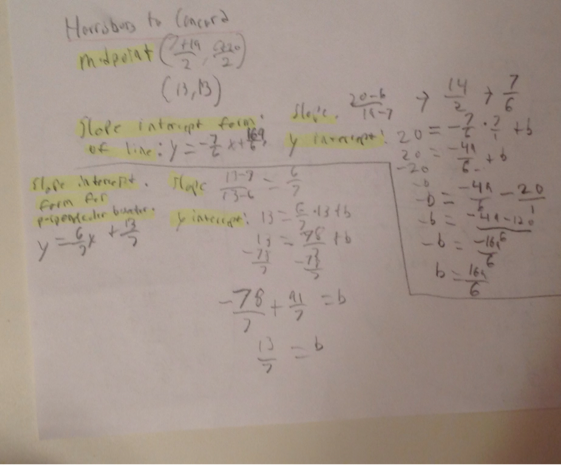 Harrisburg to Concord
midpoint (7+19/2, 6+20/2)
(13,13)
Slope intercept form
of line: y = -7/6 x + 169/6
Slope: 20-6/19-7 → 14/2 → 7/6
y intercept:
20 = -7/6 · 7/1 + b
20 = -49/6 + b
-20
-b = -49/6 - 20/1
-b = -49-120/6
-b = -169/6
b = 169/6
Slope intercept
form for
perpendicular
y = 6/7 x + 13/7
Slope 13-7/13-6 = 6/7
y intercept: 13 = 6/7 · 13 + b
13 = 78/7 + b
-78/7 + 91/7 = b
13/7 = b